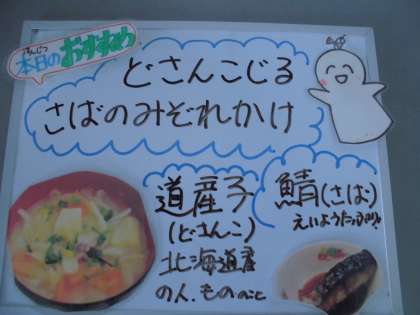 ほんじつ
本日のおすすめ
どさんこじる
さばのみぞれかけ
道産子
(どさんこ)
北海道産
の人、もののこと
鯖(さば)
えいようたっぷり!